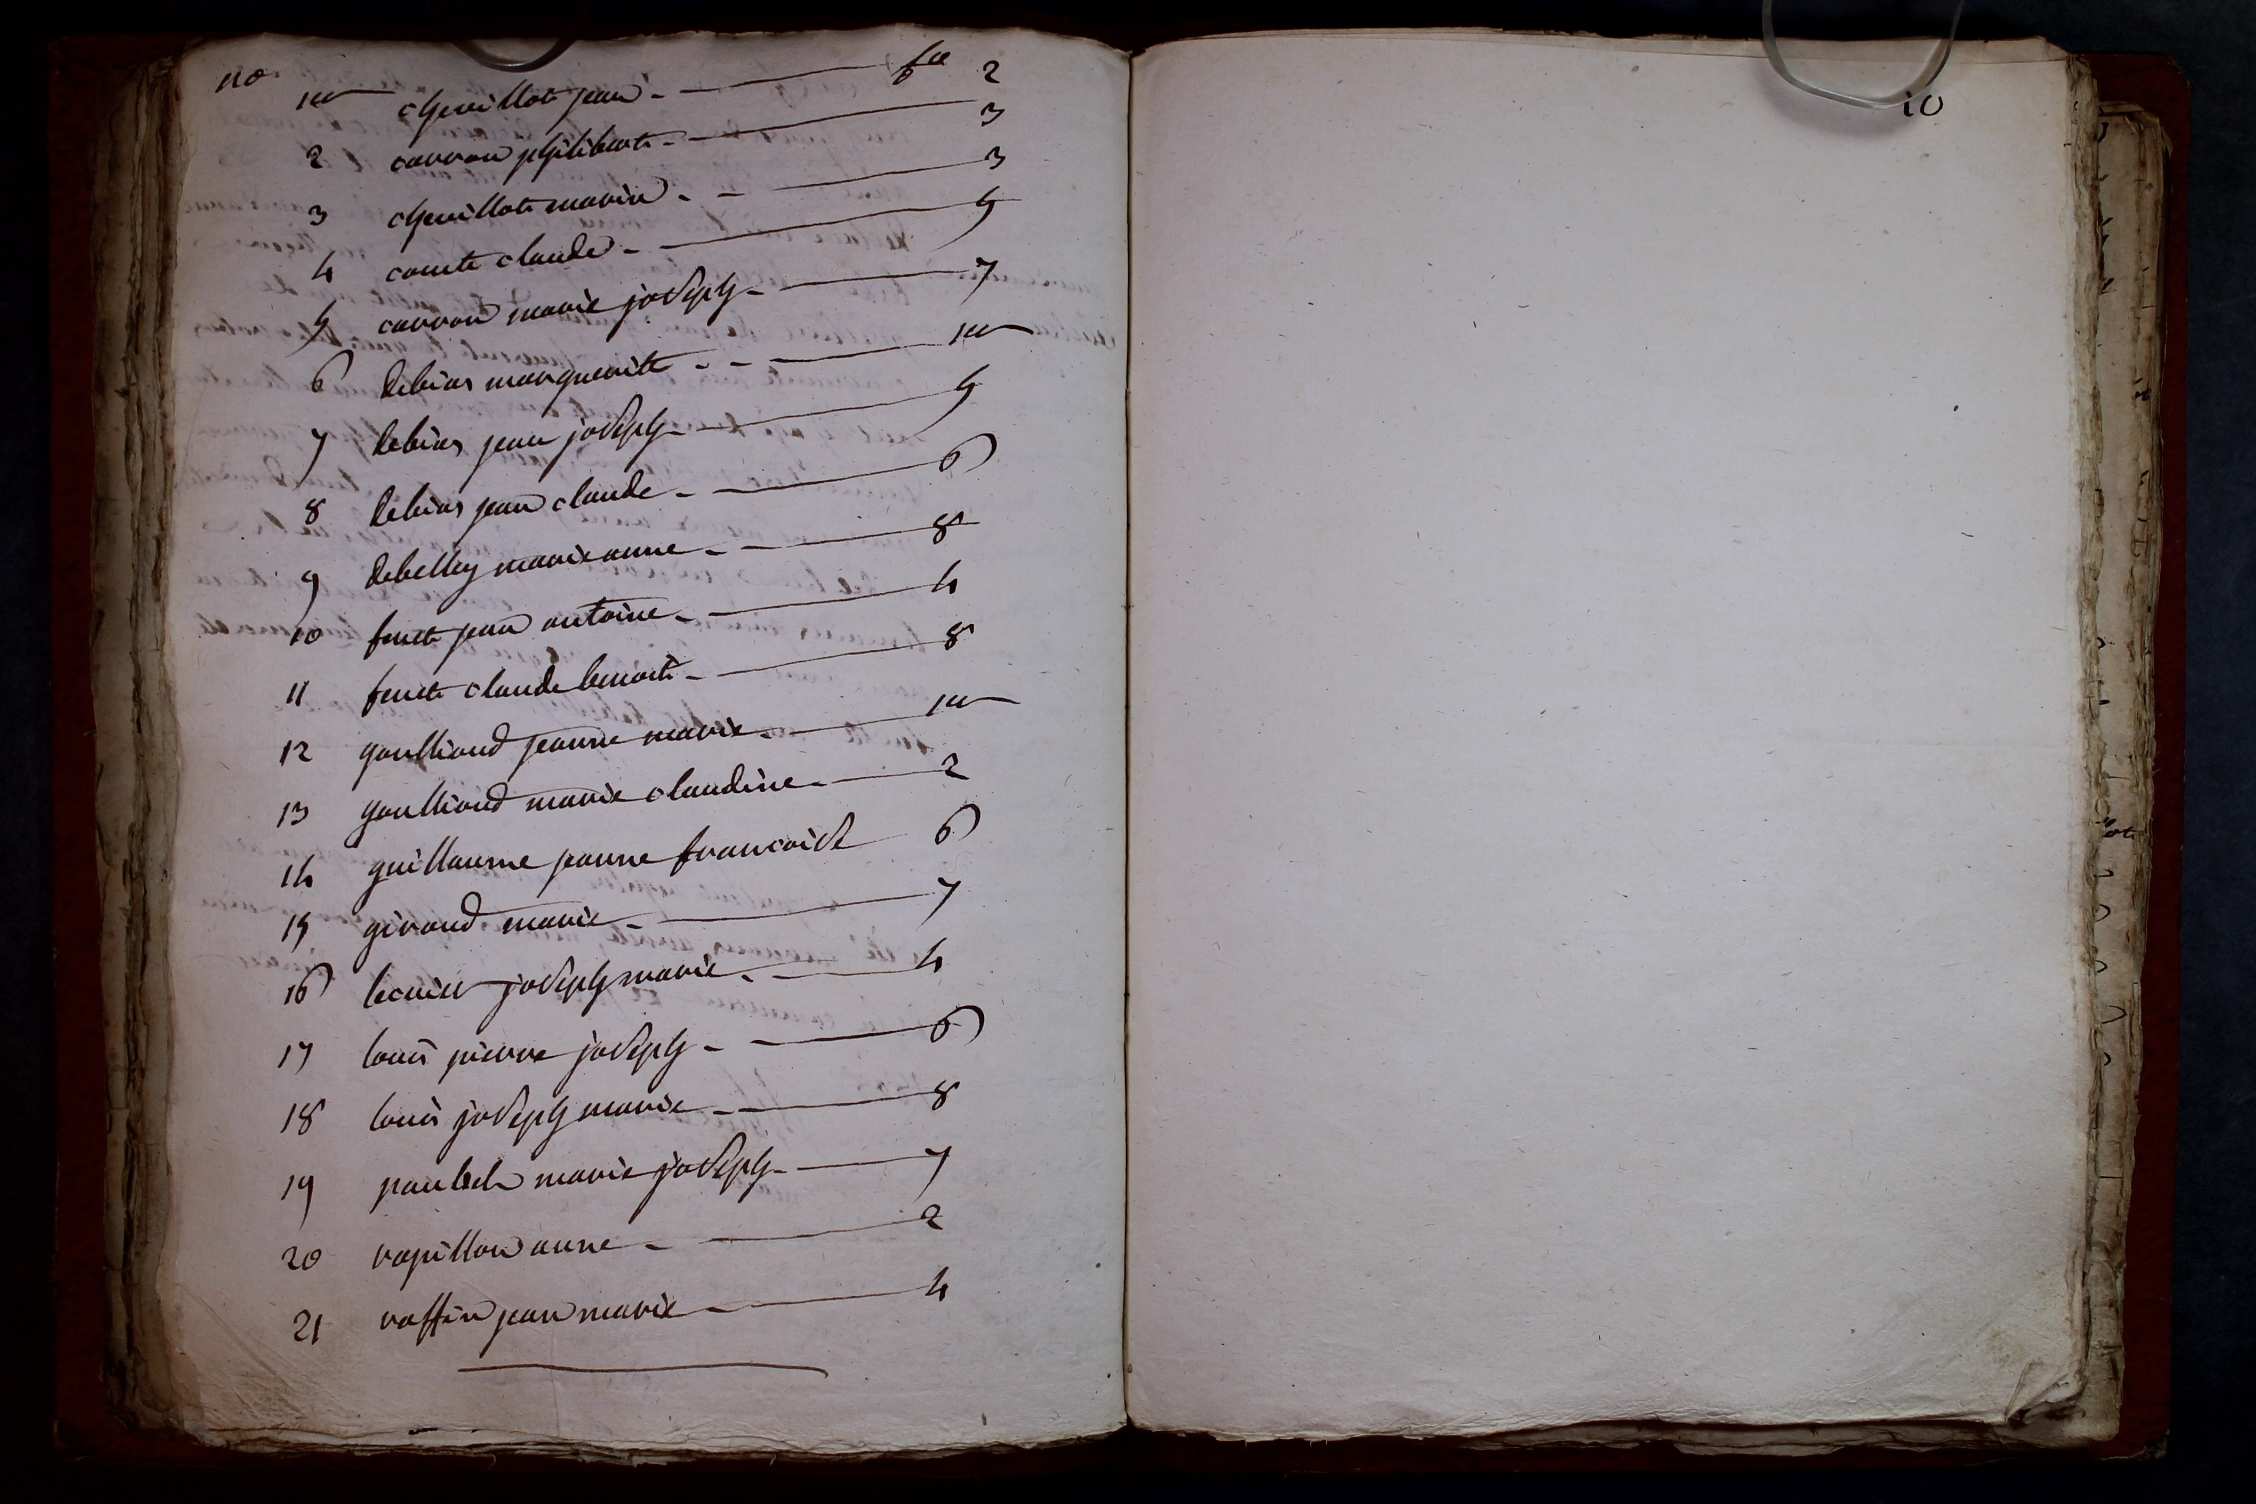 no fo
1er chevillot jean - 2
2 carron philibert - 3
3 chevillot marin - - 3
4 comte claude - 5
5 carron marie joseph - 7
6 debias marguerite - - 1er
7 debias jean joseph - 5
8 debias jean claude - 6
9 debelley marie anne - 8
10 feuret jean antoine - 4
11 feuret claude benoit - 8
12 goullioud jeanne marie - 1er
13 goullioud marie claudine - 2
14 guillaume jeanne francoise 6
15 giroud marie - 7
16 lecuier joseph marie - 4
17 louis pierre joseph - 6
18 louis joseph marie - 8
19 joseph marie - 7
20 rapillon anne - 2
21 raffin jean marie - 4
10